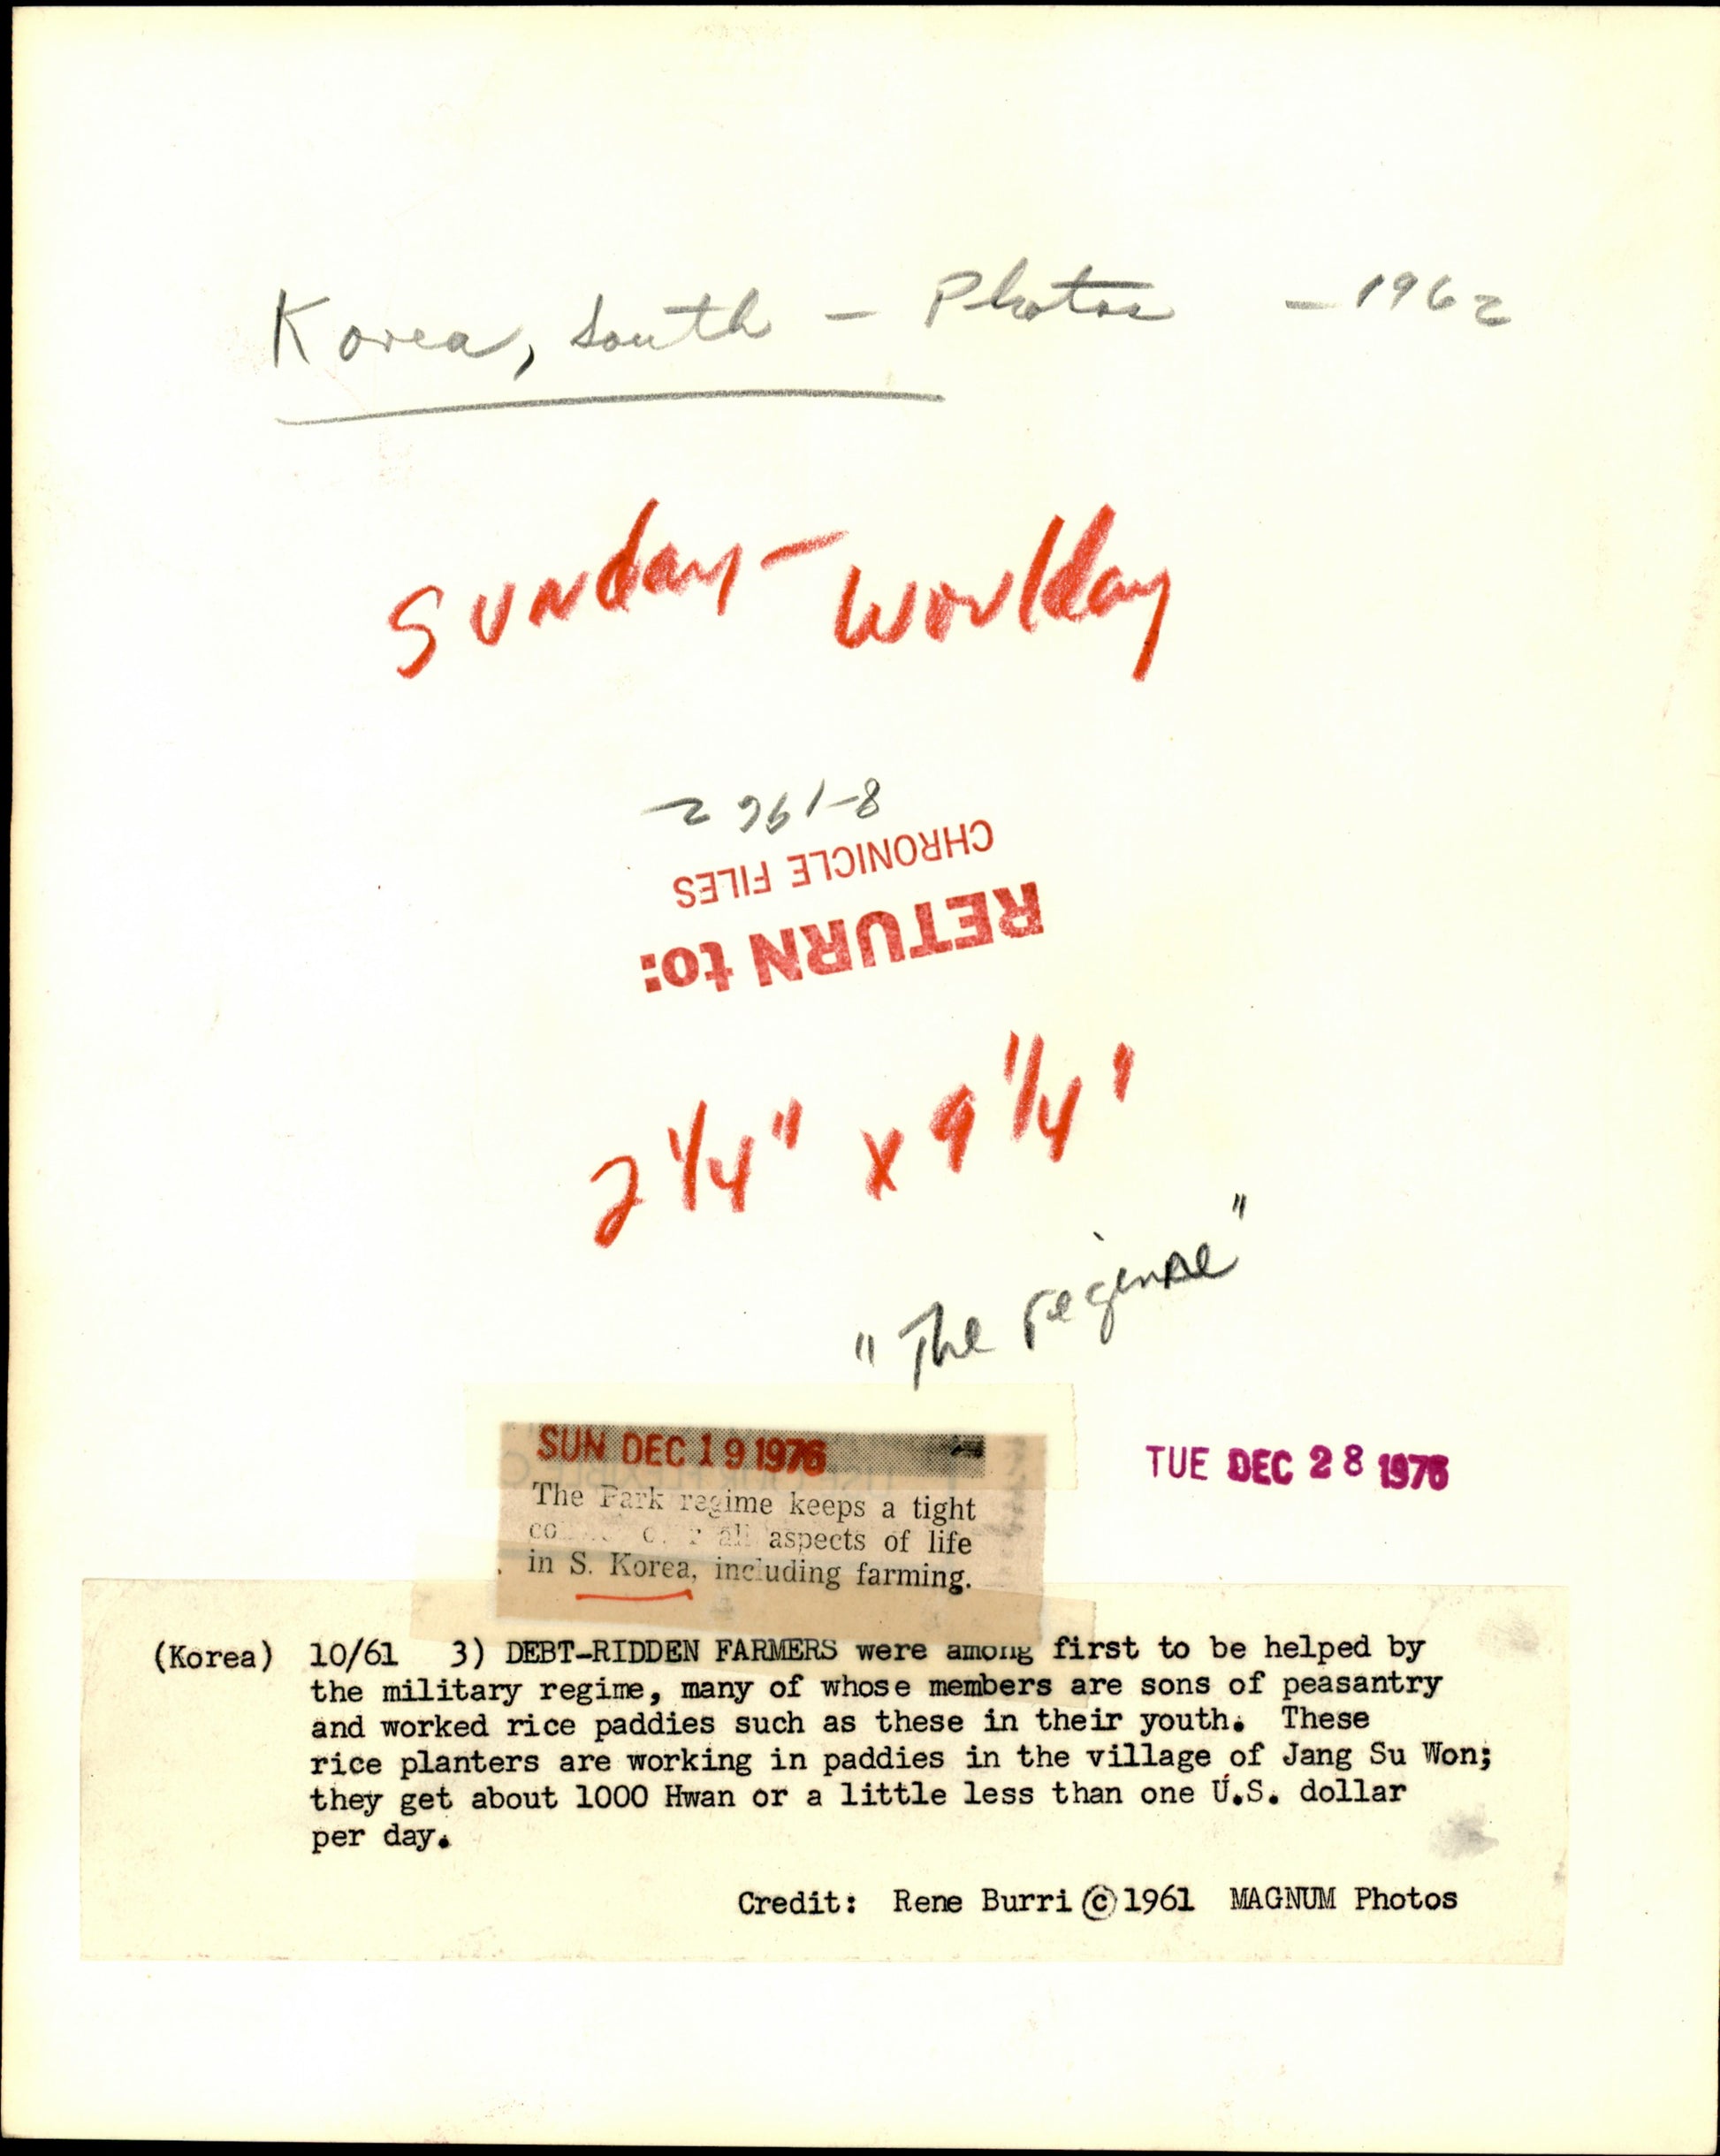 Korea, South - Photos - 1962
Sunday - World
8-1962
RETURN to:
CHRONICLE FILES
2 1/4" x 9 1/4"
"The regime"
SUN DEC 19 1976
TUE DEC 28 1976
The Park regime keeps a tight
all aspects of life
in S. Korea, including farming.
(Korea) 10/61 3) DEBT-RIDDEN FARMERS were among first to be helped by
the military regime, many of whose members are sons of peasantry
and worked rice paddies such as these in their youth. These
rice planters are working in paddies in the village of Jang Su Won;
they get about 1000 Hwan or a little less than one U.S. dollar
per day.
Credit: Rene Burri © 1961 MAGNUM Photos